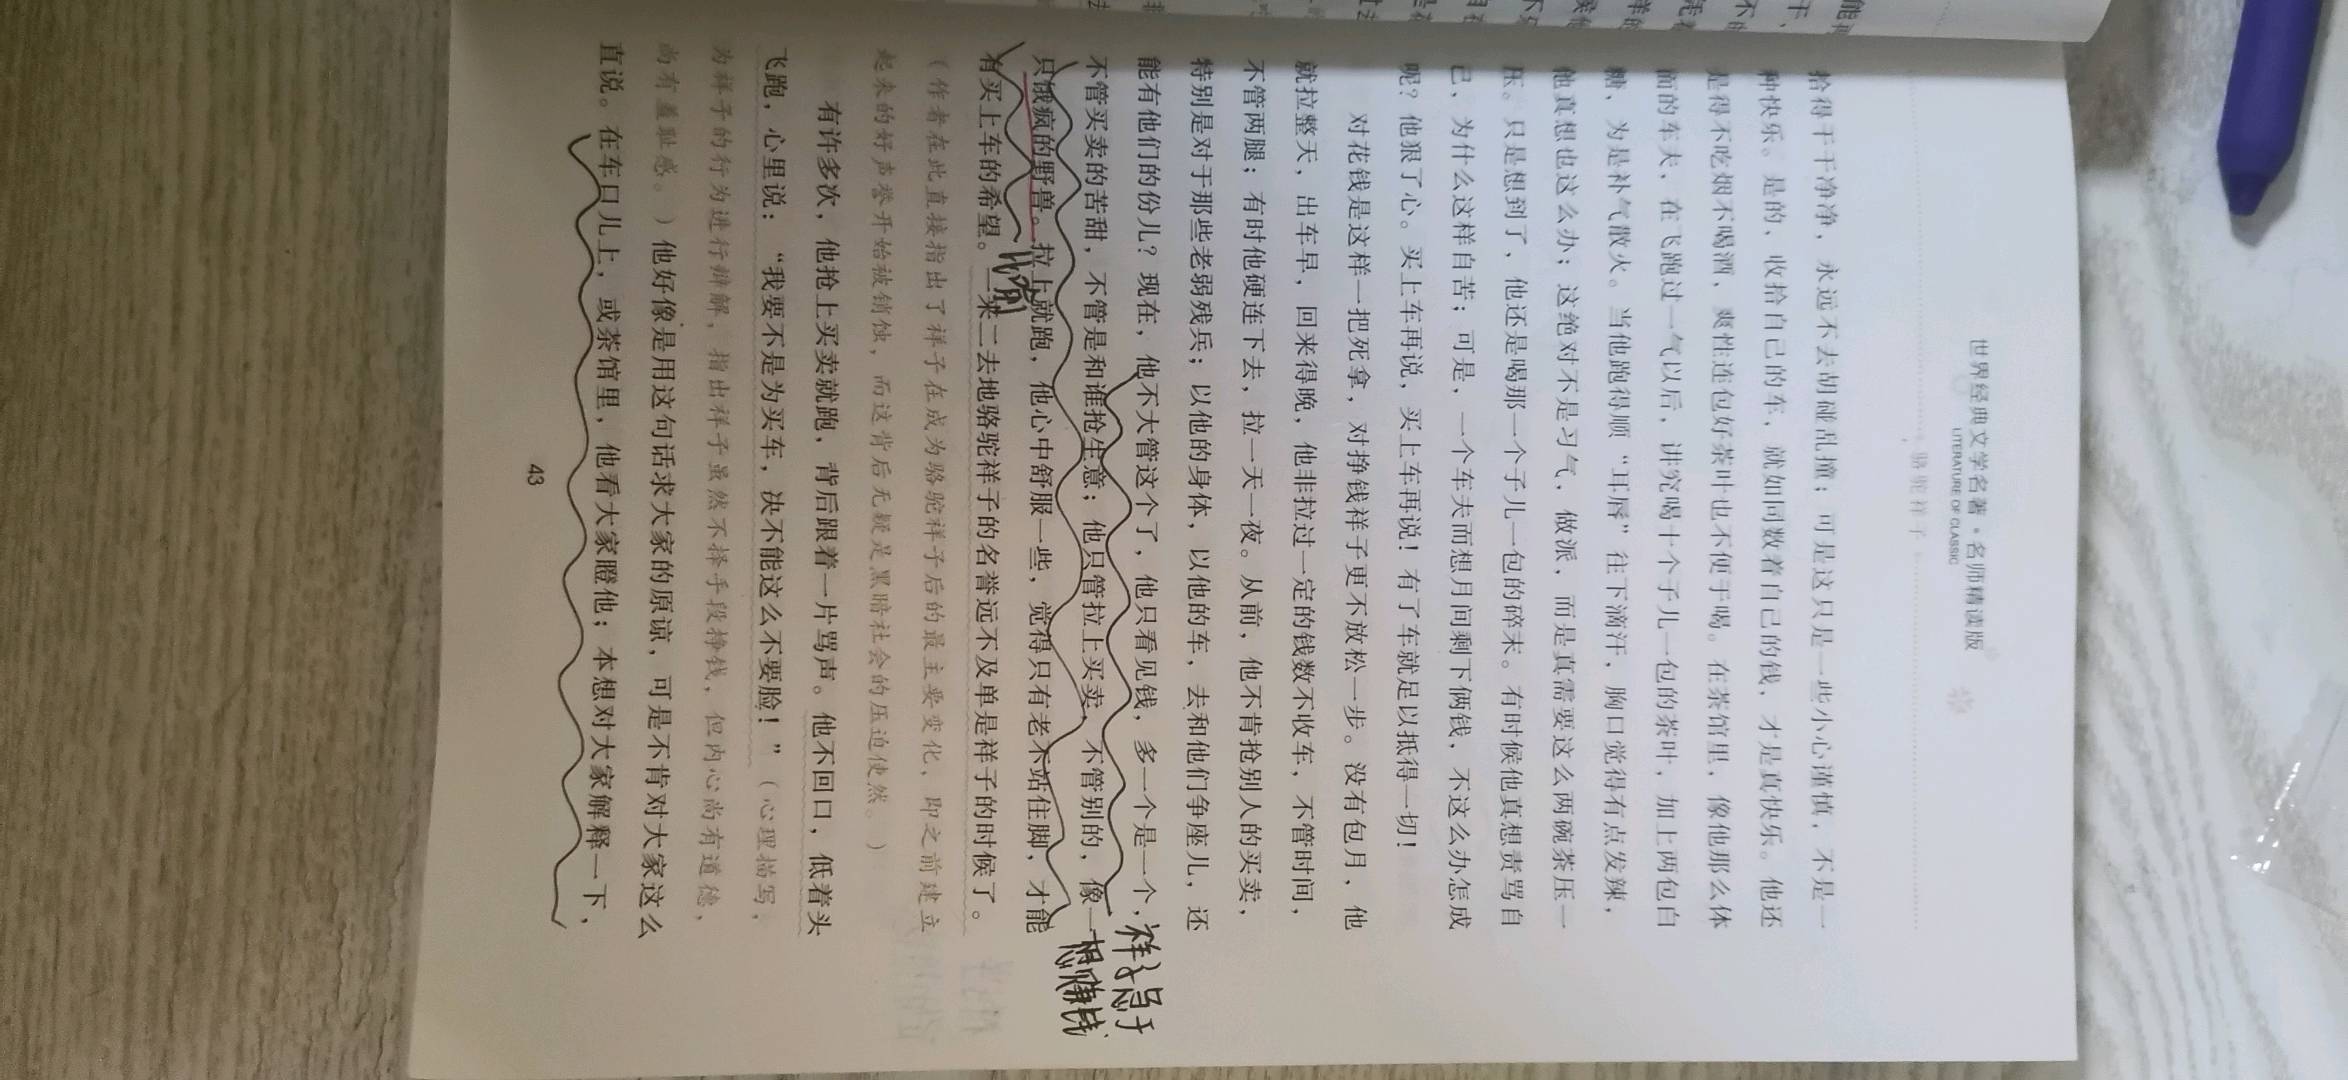 世界经典文学名著·名师精读版
LITERATURE OF CLASSIC
骆驼祥子
拾得干干净净，永远不去胡碰乱撞；可是这只是一些小心谨慎，不是一
种快乐。是的，收拾自己的车，就如同数着自己的钱，才是真快乐。他还
是得不吃烟不喝酒，爽性连包好茶叶也不便于喝。在茶馆里，像他那么体
面的车夫，在飞跑过一气以后，讲究喝十个子儿一包的茶叶，加上两包白
糖，为是补气散火。当他跑得顺“耳唇”往下滴汗，胸口觉得有点发辣，
他真想也这么办；这绝对不是习气，做派，而是真需要这么两碗茶压一
压。只是想到了，他还是喝那一个子儿一包的碎末。有时候他真想责骂自
己，为什么这样自苦；可是，一个车夫而想月间剩下俩钱，不这么办怎成
呢？他狠了心。买上车再说，买上车再说！有了车就足以抵得一切！
对花钱是这样一把死拿，对挣钱祥子更不放松一步。没有包月，他
就拉整天，出车早，回来得晚，他非拉过一定的钱数不收车，不管时间，
不管两腿；有时他硬连下去，拉一天一夜。从前，他不肯抢别人的买卖，
特别是对于那些老弱残兵；以他的身体，以他的车，去和他们争座儿，还
能有他们的份儿？现在，他不大管这个了，他只看见钱，多一个是一个，
不管买卖的苦甜，不管是和谁抢生意；他只管拉上买卖，不管别的，像一
只饿疯的野兽。拉上就跑，他心中舒服一些，觉得只有老不站住脚，才能
有买上车的希望。一来二去地骆驼祥子的名誉远不及单是祥子的时候了。
（作者在此直接指出了祥子在成为骆驼祥子后的最主要变化，即之前建立
起来的好声誉开始被销蚀，而这背后无疑是黑暗社会的压迫使然。）
有许多次，他抢上买卖就跑，背后跟着一片骂声。他不回口，低着头
飞跑，心里说：“我要不是为买车，决不能这么不要脸！”（心理描写，
为祥子的行为进行辩解，指出祥子虽然不择手段挣钱，但内心尚有道德，
尚有羞耻感。）他好像是用这句话求大家的原谅，可是不肯对大家这么
直说。在车口儿上，或茶馆里，他看大家瞪他；本想对大家解释一下，
43
祥子急于
想赚钱
比喻